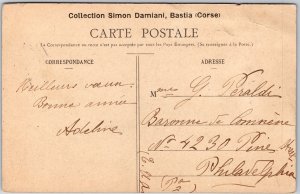 Collection Simon Damiani, Bastia (Corse)
CARTE POSTALE
La Correspondance au recto n'est pas acceptée par tous les Pays Étrangers. (Se renseigner à la Poste.)
CORRESPONDANCE
ADRESSE
Meilleurs vœux
Bonne année
Adeline
Mme G. Peraldi
Baronne de Comnène
No 4230 Pine
Philadelphia
(Pa